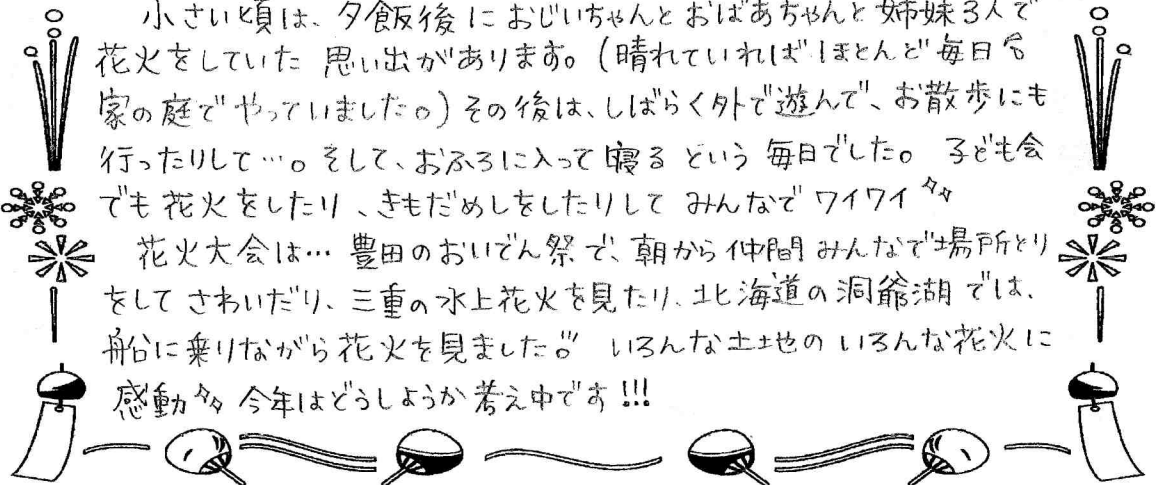 小さい頃は、夕飯後におじいちゃんとおばあちゃんと姉妹3人で
花火をしていた思い出があります。(晴れていればほとんど毎日
家の庭でやっていました。)その後は、しばらく外で遊んで、お散歩にも
行ったりして…。そして、おふろに入って寝るという毎日でした。子ども会
でも花火をしたり、きもだめしをしたりしてみんなでワイワイ
花火大会は…豊田のおいでん祭で、朝から仲間みんなで場所とり
をしてさわいだり、三重の水上花火を見たり、北海道の洞爺湖では、
船に乗りながら花火を見ました。いろんな土地のいろんな花火に
感動 今年はどうしようか考え中です!!!